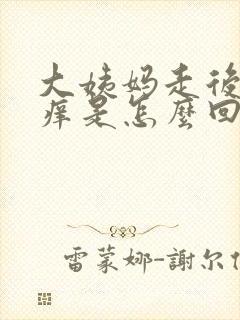 大姨妈走後
痒是怎麼回
雷蒙娜-謝尔